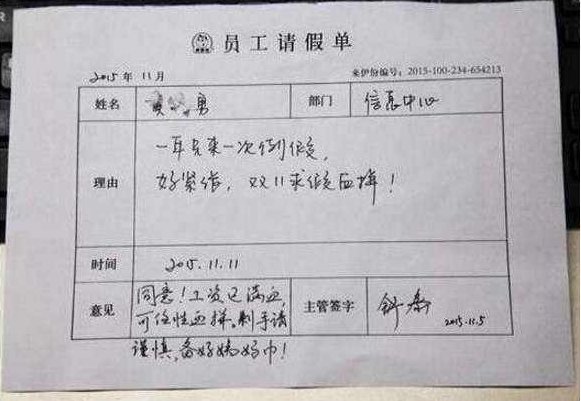 员工请假单
2015年11月
来伊份编号：2015-100-234-654213
姓名 黄 勇 部门 信息中心
一年只来一次例假，
理由
好紧张，双11求假血拼！
时间 2015.11.11
同意！工资已满血，
意见 可任性血拼。剁手请 主管签字
谨慎，备好姨妈巾！
2015.11.5